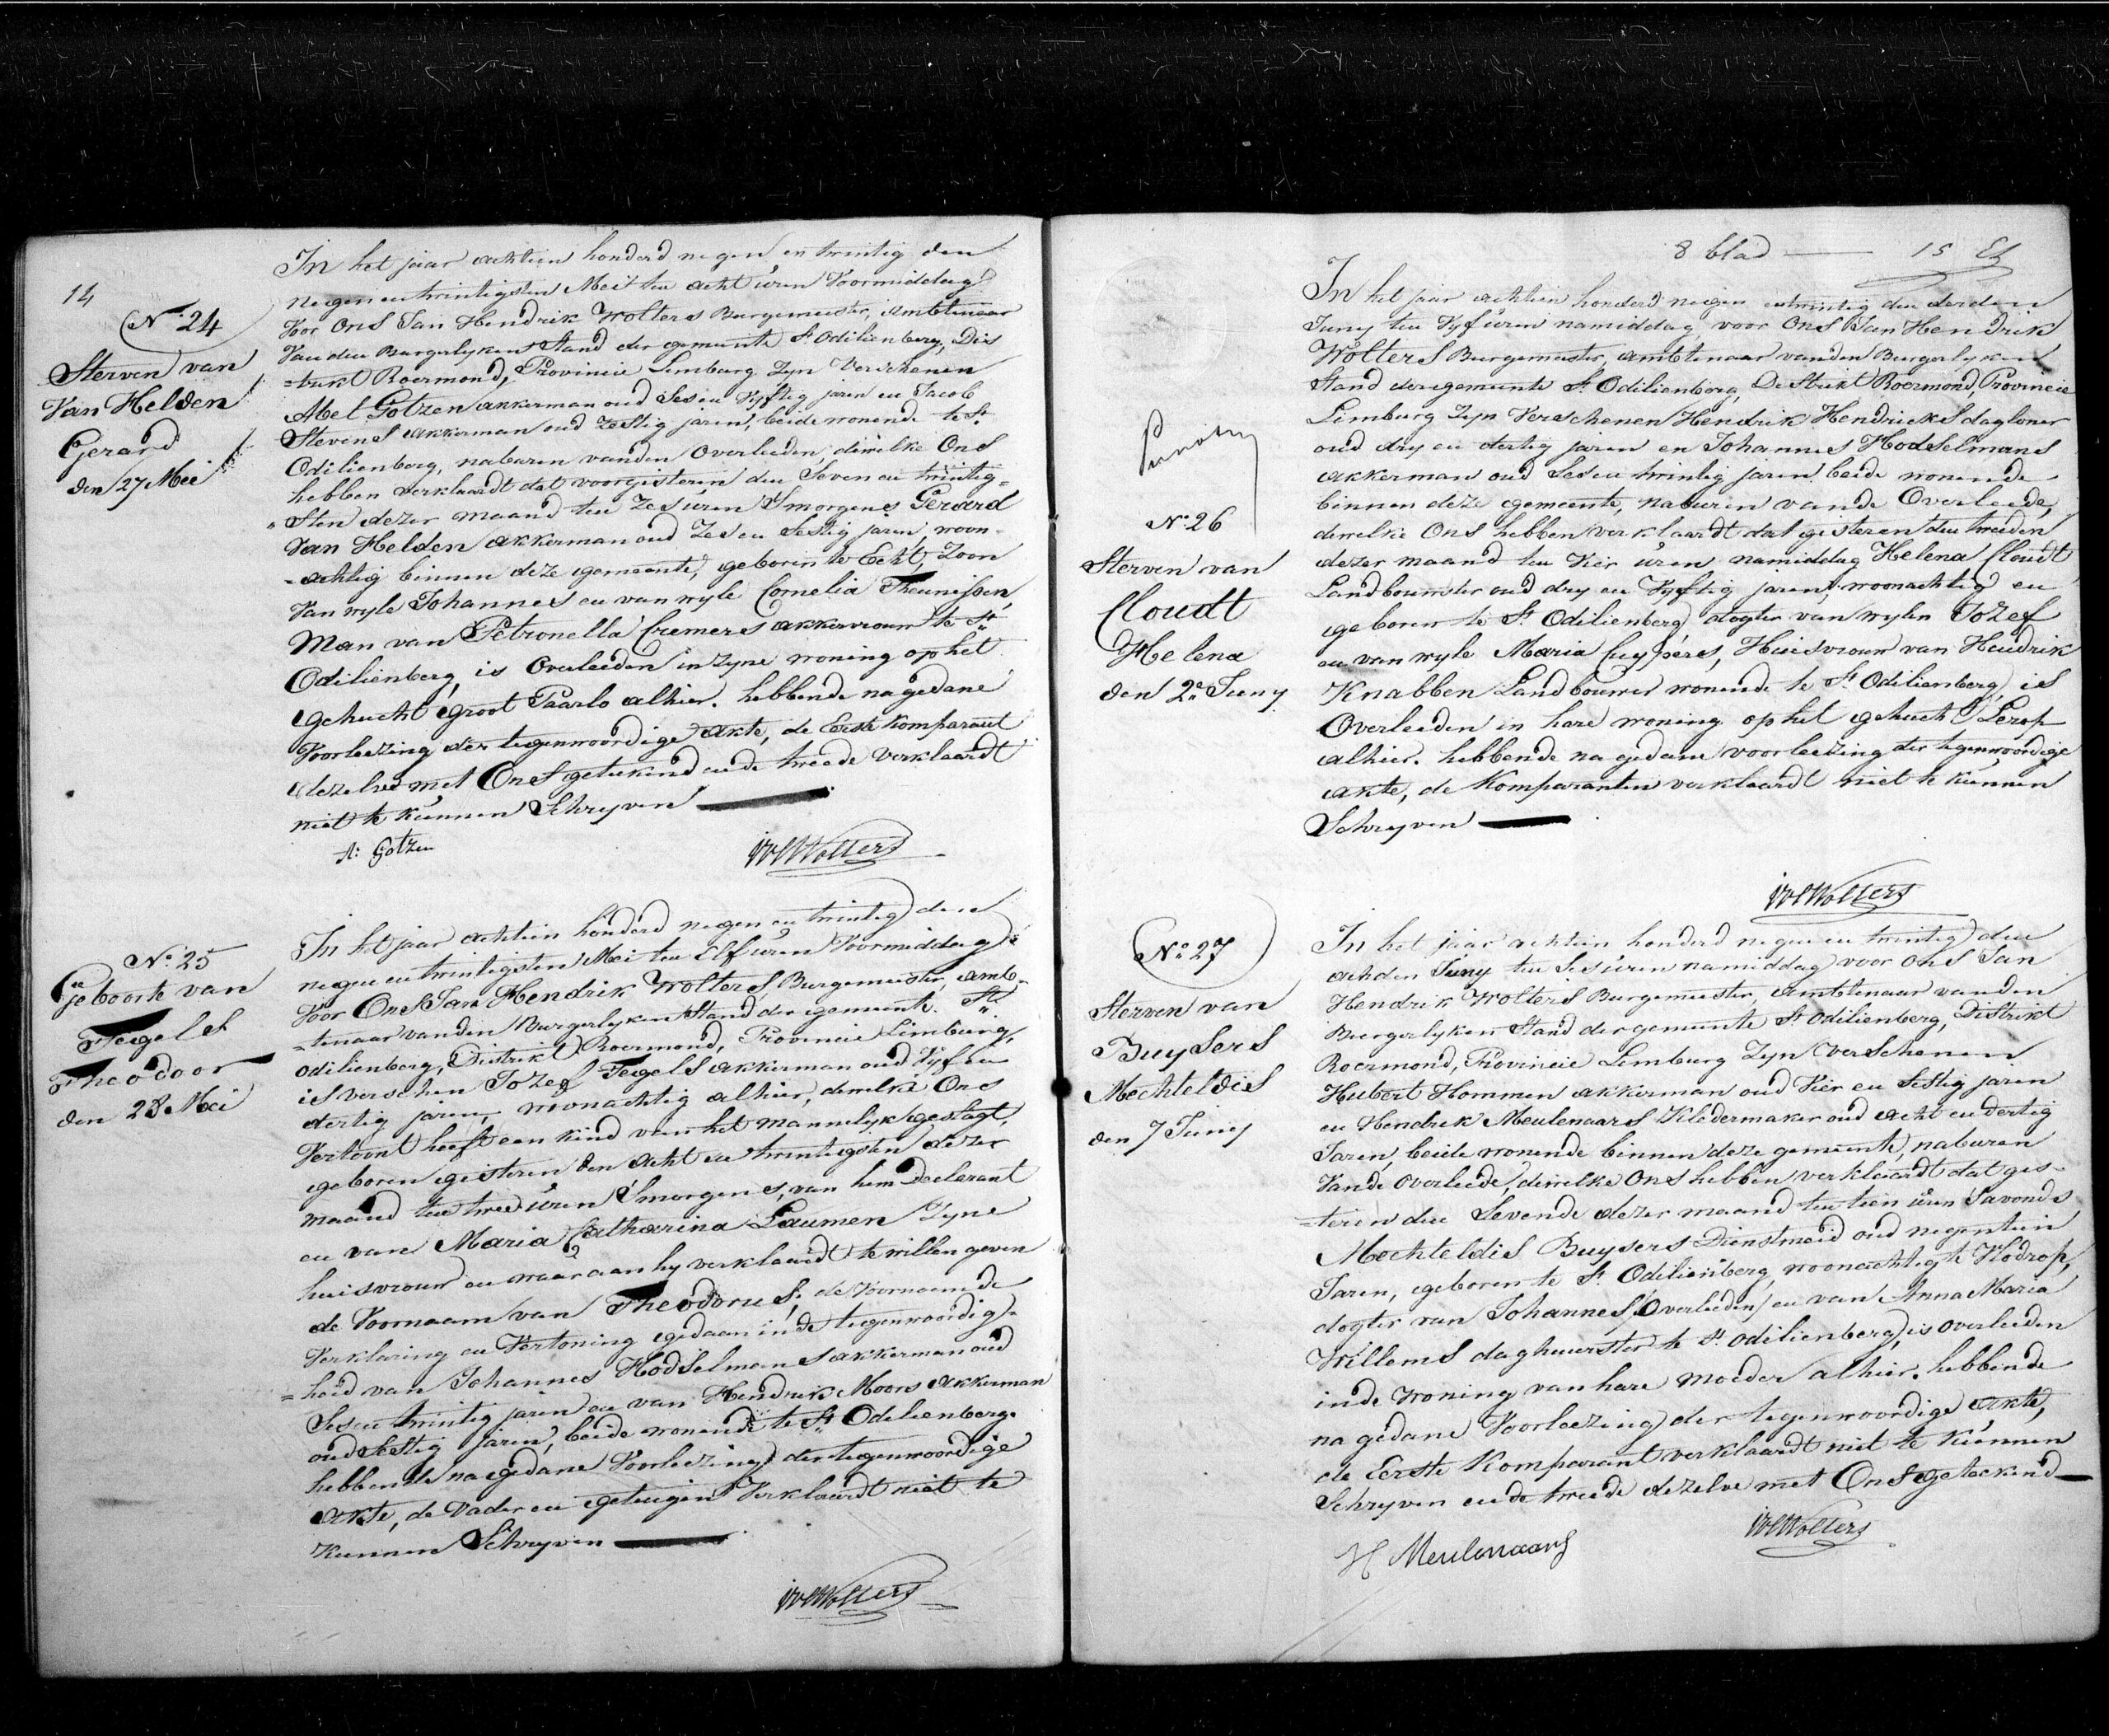 14
N.º 24
Sterven van
Van Helden
Gerard
den 27 Mei
In het jaar achtien honderd negen en twintig den
negenentwintigsten Mei ten acht uren Voormiddag
Voor Ons Jan Hendrik Wolters Burgemeester, Ambtenaar
Van den Burgerlyken Stand der gemeente St Odilienberg, Dis
=trikt Roermond, Provincie Limburg Zyn Verschenen
Abel Gotzen akkerman oud Ses en Vyftig jaren en Jacob
Stevens akkerman oud Zestig jaren, beide wonende te St
Odilienberg, naburen vanden Overleden, dewelke Ons
hebben verklaardt dat voorgisteren den Seven en twintig=
=Sten dezer maand ten Zes uren Smorgens Gerard
Van Helden akkerman oud Zes en Sestig jaren, woon=
=achtig binnen deze gemeente, geboren te Echt, Zoon
Van wyle Johannes en van wyle Cornelia Theunissen,
Man van Petronella Cremers akkervrouw te St
Odilienberg, is Overleeden in Zyne woning op het
gehucht groot Paarlo alhier. hebbende na gedane
Voorleezing der tegenwoordige akte, de Eerste Komparant
dezelve met Ons getekend en de tweede Verklaardt
niet te kunnen Schryven
A: Gotzen
JH Wolters
N.º 25
Geboorte van
Tegels
Theodoor
den 28 Mei
In het jaar achtien honderd negen en twintig den
negen en twintigsten Mei ten Elf uren Voormiddag
Voor Ons Jan Hendrik Wolters, Burgemeester, Amb=
=tenaar van den Burgerlyken Stand der gemeente St
Odilienberg, Distrikt Roermond, Provincie Limburg,
is verschen Jozef Tegels akkerman oud Vyf en
dertig jaren, woonachtig alhier, dewelke Ons
Vertoont heeft een kind van het mannelyk geslagt,
geboren gisteren den Acht en twintigsten dezer
maand ten twee uren Smorgens, van hem Declerant
en van Maria Catharina Laumen Zyne
huisvrouw en waaraan hy verklaardt te willen geven
de Voornaam van Theodorus, de Voornoemde
Verklaring en Vertoning gedaan inde tegenwoordig=
=heid van Johannes Hodselmans akkerman oud
Ses en twintig jaren en van Hendrik Moors akkerman
oud Sestig jaren, beide wonende te St Odilienberg.
hebbende na gedane Voorleezing der tegenwoordige
akte, de Vader en getuigen Verklaardt niet te
Kunnen Schryven
JH Wolters
8 blad 15
N.º 26
Sterven van
Cloudt
Helena
den 2.e Juny
In het jaar achtien honderd negen entwintig den derden
Juny ten Vyf uren namiddag voor Ons Jan Hendrik
Wolters Burgemeester, Ambtenaar van den Burgerlyken
Stand der gemeente St Odilienberg, Distrikt Roermond, Provincie
Limburg Zyn Verschenen Hendrik Hendricks dagloner
oud dry en dertig jaren en Johannes Hodselmans
akkerman oud Ses en twintig jaren beide wonende
binnen deze gemeente, naburen vande Overleede,
dewelke Ons hebben verklaardt dat gisteren den tweeden
dezer maand ten Vier uren namiddag Helena Cloudt,
Landbouwster oud dry en Vyftig jaren, woonachtig en
geboren te St Odilienberg, dogter van wylen Jozef
en van wyle Maria Cuypers, Huisvrouw van Hendrik
Knabben Landbouwer wonende te St Odilienberg, is
Overleeden in hare woning op het gehucht Lerop
alhier. hebbende na gedane voorleezing der tegenwoordige
akte, de Komparanten verklaardt niet te kunnen
Schryven
JH Wolters
N.º 27
Sterven van
Buysers
Mechteldis
den 7 Juny
In het jaar achtien honderd negen en twintig den
achden Juny ten Ses uren namiddag voor Ons Jan
Hendrik Wolters Burgemeester, Ambtenaar vanden
Burgerlyken Stand der gemeente St Odilienberg, Distrikt
Roermond, Provincie Limburg Zyn Verschenen
Hubert Hommen akkerman oud Vier en Sestig jaren
en Hendrik Meulenaars Kledermaker oud Acht en dertig
Jaren, beide wonende binnen deze gemeente, naburen
Vande Overleede, dewelke Ons hebben verklaardt dat gis=
=teren den Sevende dezer maand ten tien uren Savonds
Mechteldis Buysers Dienstmeid oud negentien
Jaren, geboren te St Odilienberg, woonachtig te Vlodrop,
dogter van Johannes (Overleeden) en van Anna Maria
Willems daghuurster te St Odilienberg, is Overleeden
inde woning van hare moeder alhier. hebbende
na gedane Voorleezing der tegenwoordige akte,
de Eerste Komparant verklaardt niet te kunnen
Schryven en de tweede dezelve met Ons geteekend
H Meulenaars
JH Wolters